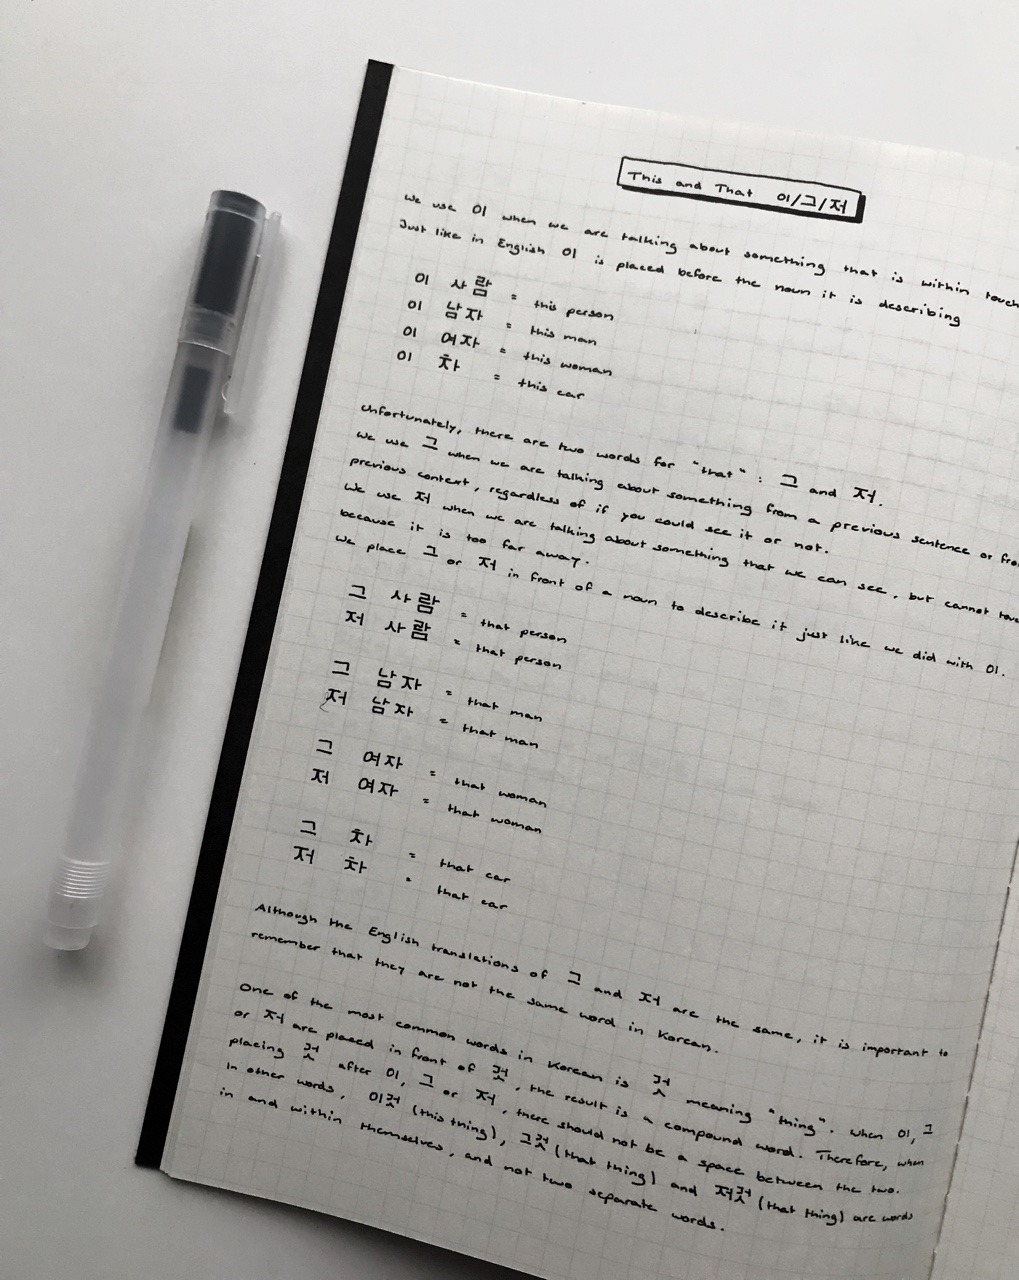 This and That 이/그/저
We use 이 when we are talking about something that is within touch
Just like in English 이 is placed before the noun it is describing
이 사람 = this person
이 남자 = this man
이 여자 = this woman
이 차 = this car
Unfortunately, there are two words for "that" : 그 and 저.
We use 그 when we are talking about something from a previous sentence or from
previous context, regardless of if you could see it or not.
We use 저 when we are talking about something that we can see, but cannot
because it is too far away.
We place 그 or 저 in front of a noun to describe it just like we did with 이.
그 사람 = that person
저 사람 = that person
그 남자 = that man
저 남자 = that man
그 여자 = that woman
저 여자 = that woman
그 차 = that car
저 차 = that car
Although the English translations of 그 and 저 are the same, it is important to
remember that they are not the same word in Korean.
One of the most common words in Korean is 것 meaning "thing". When 이, 그
or 저 are placed in front of 것, the result is a compound word. Therefore, when
placing 것 after 이, 그 or 저, there should not be a space between the two.
In other words, 이것 (this thing), 그것 (that thing) and 저것 (that thing) are words
in and within themselves, and not two separate words.